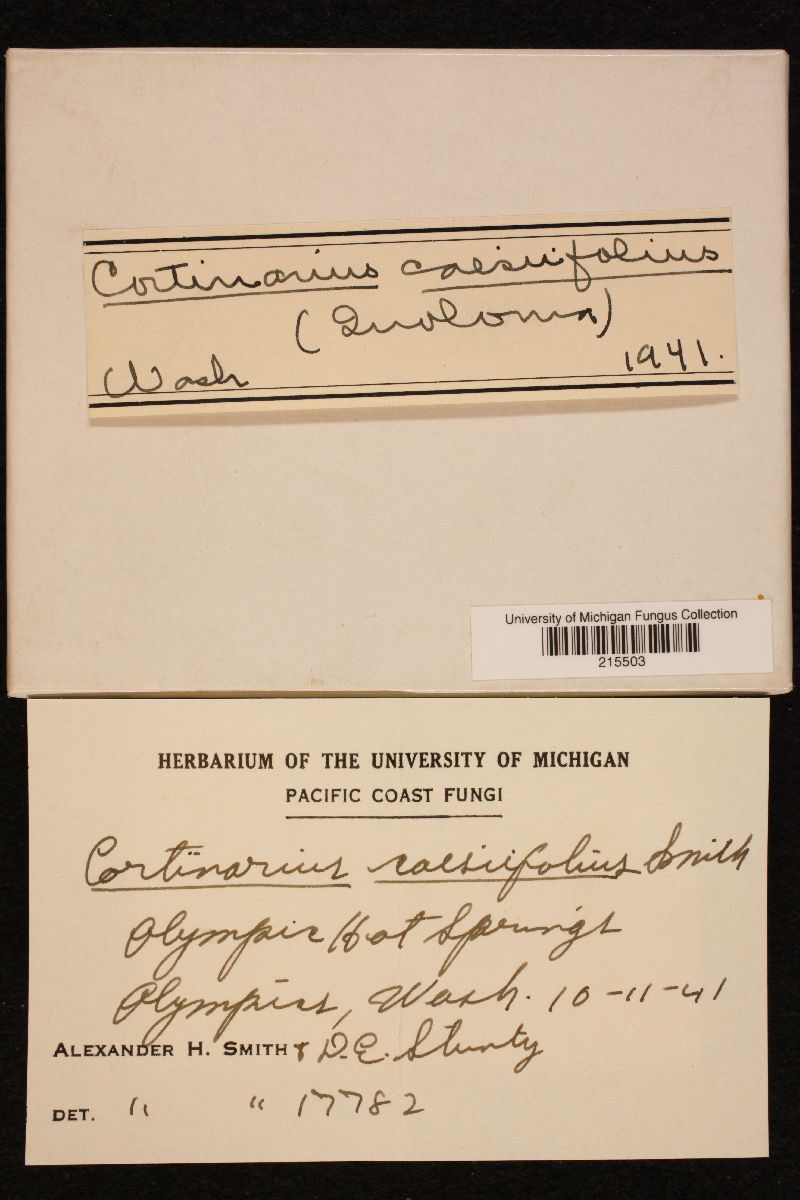 Cortinarius caesiifolius
(Inoloma)
Wash 1941.
University of Michigan Fungus Collection
215503
HERBARIUM OF THE UNIVERSITY OF MICHIGAN
PACIFIC COAST FUNGI
Cortinarius caesiifolius Smith
Olympic Hot Springs
Olympics, Wash. 10-11-41
ALEXANDER H. SMITH & D.E. Stuntz
DET. " " 17782